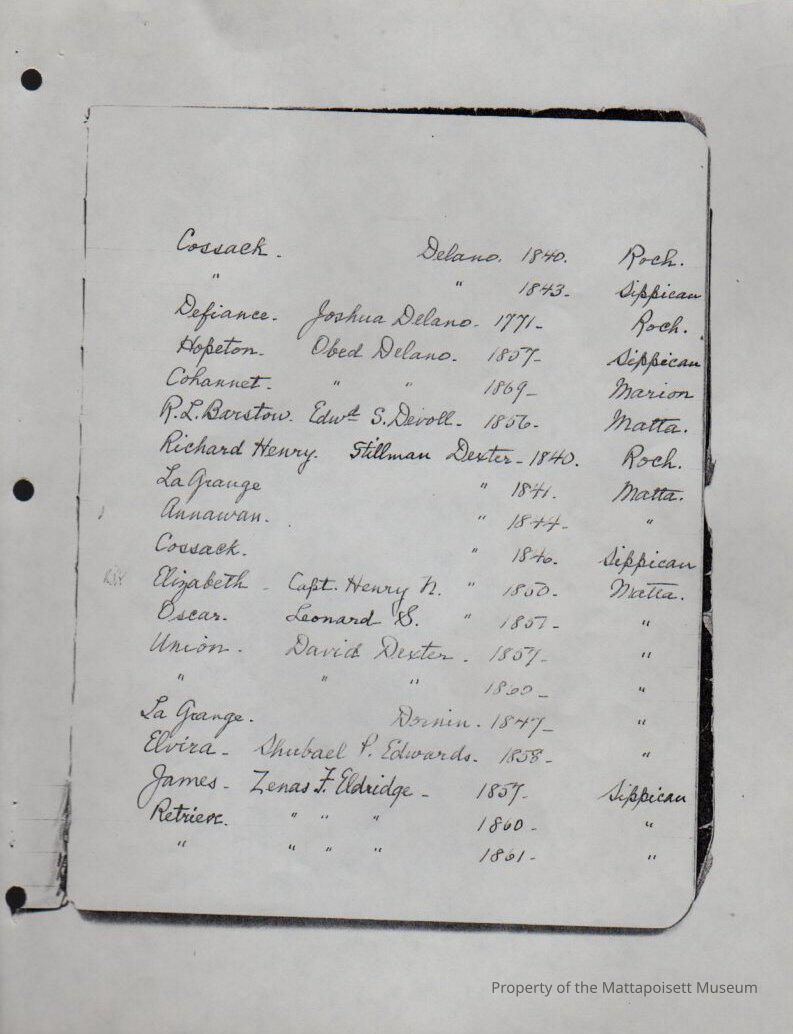 Cossack. Delano. 1840. Roch.
" " 1843- Sippican
Defiance. Joshua Delano. 1771- Roch.
Hopeton. Obed Delano. 1857- Sippican
Cohannet. " " 1869- Marion
R.L. Barstow. Edwd S. Devoll. 1856- Matta.
Richard Henry. Stillman Dexter- 1840. Roch.
La Grange " 1841. Matta.
Annawan. " 1844- "
Cossack. " 1846. Sippican
Elizabeth - Capt. Henry N. " 1850. Matta.
Oscar. Leonard S. " 1857. "
Union. David Dexter. 1857- "
" " " 1860- "
La Grange. Dornin. 1847- "
Elvira- Shubael P. Edwards. 1858- "
James- Zenas F. Eldridge- 1857. Sippican
Retrieve. " " " 1860- "
" " " " 1861- "
Property of the Mattapoisett Museum